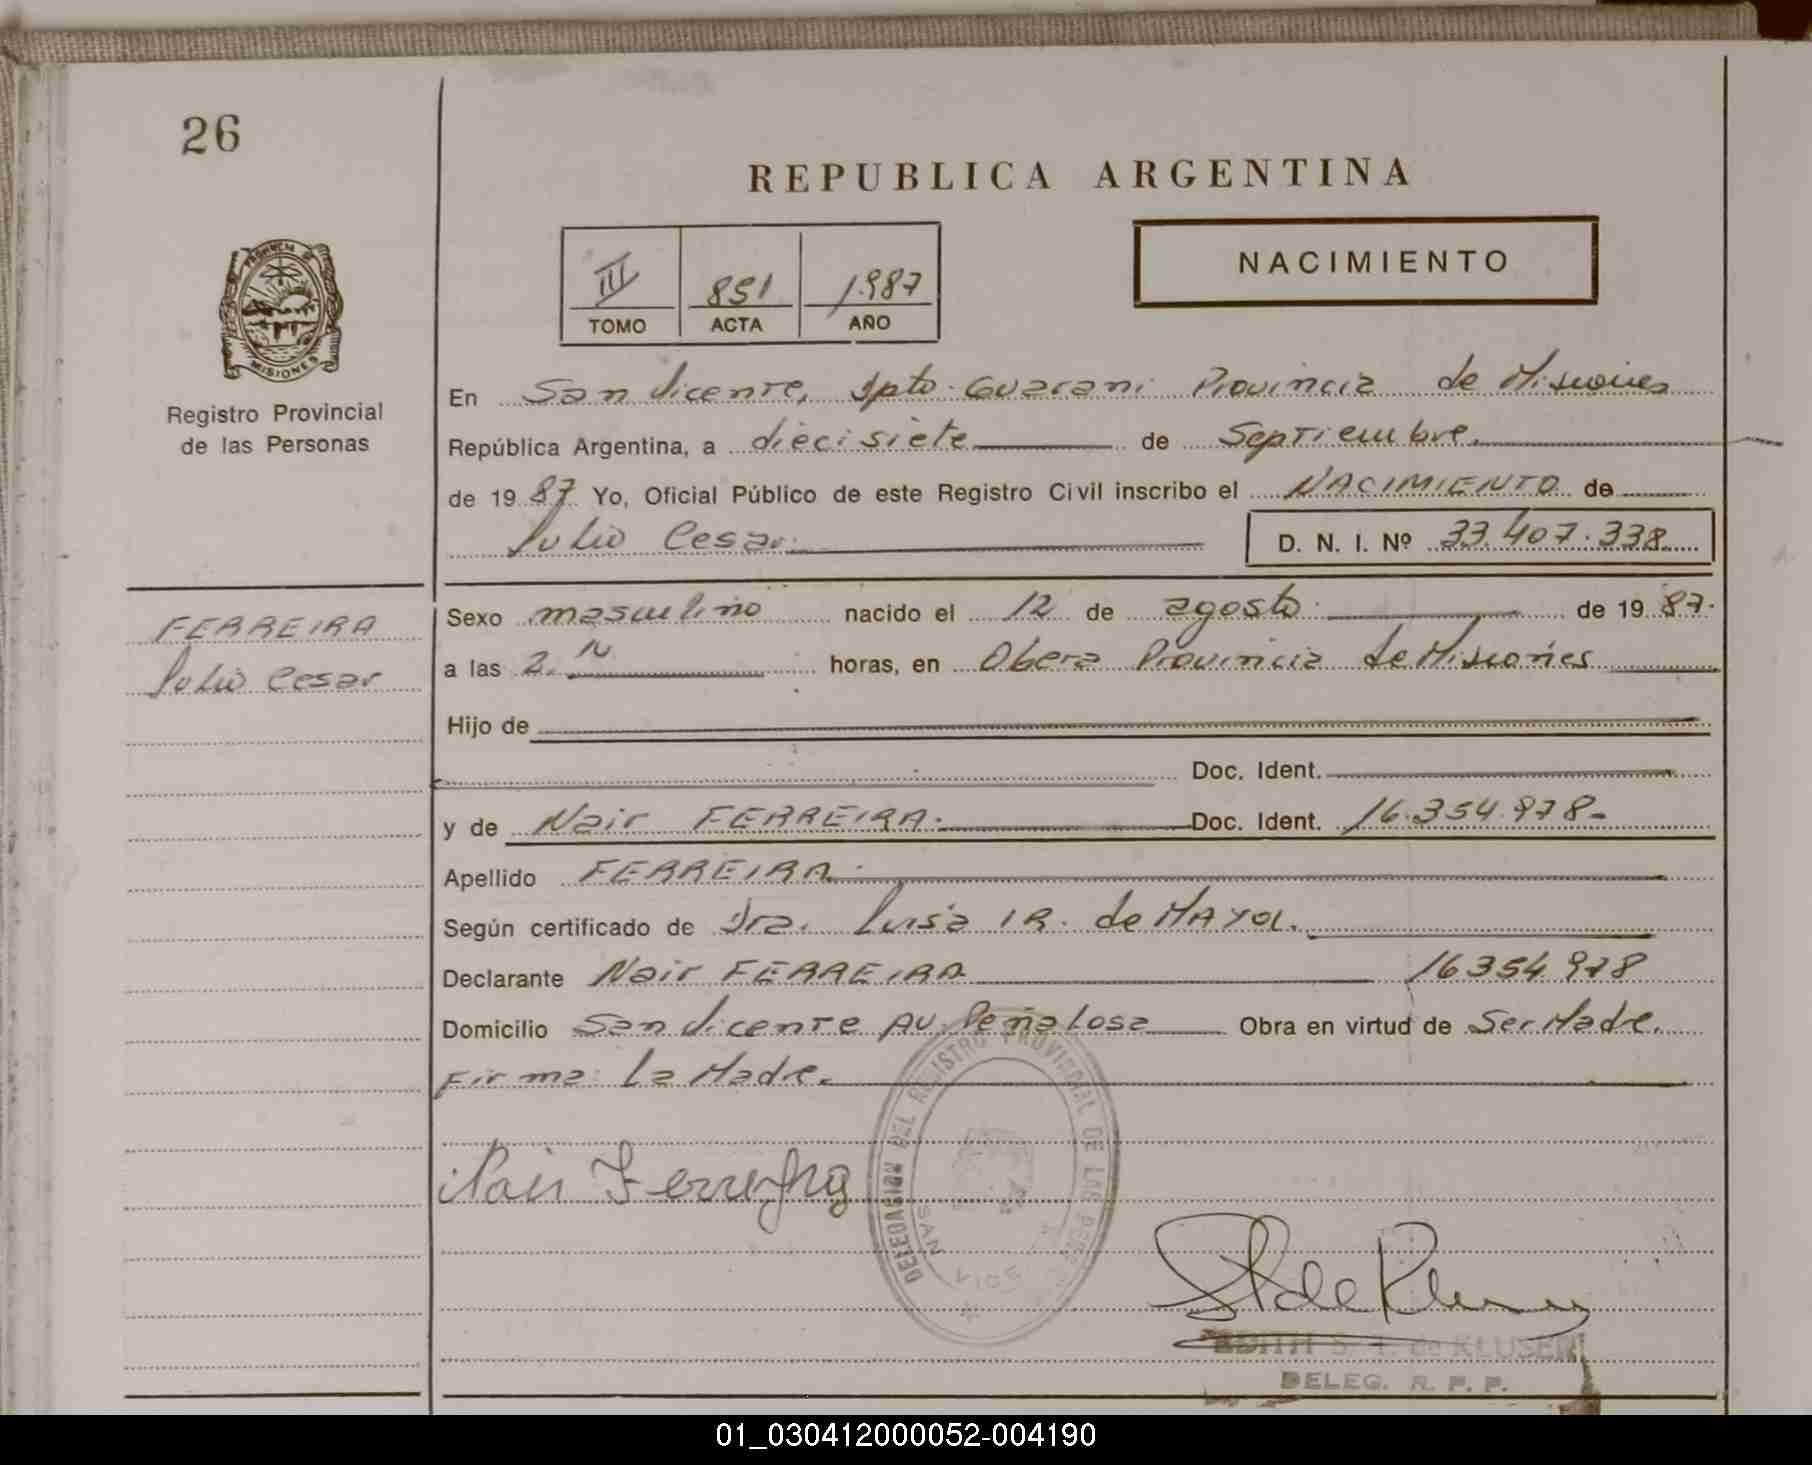 26
REPUBLICA ARGENTINA
NACIMIENTO
III 851 1987
TOMO ACTA AÑO
PROVINCIA
MISIONES
Registro Provincial
de las Personas
En San Vicente, Dpto. Guarani Provincia de Misiones
República Argentina, a diecisiete de Septiembre
de 19 87 Yo, Oficial Público de este Registro Civil inscribo el NACIMIENTO de
Julio Cesar. D. N. I. Nº 33.407.338
FERREIRA
Julio Cesar
Sexo masculino nacido el 12 de agosto de 19 87.
a las 2. horas, en Obera Provincia de Misiones
Hijo de
Doc. Ident.
y de Nair FERREIRA. Doc. Ident. 16.354.978-
Apellido FERREIRA
Según certificado de Dra. Luisa R. de MAYOL.
Declarante Nair FERREIRA 16354.978
Domicilio San Vicente AV. Peñalosa Obra en virtud de Ser Madre.
Firma: La Madre.
DELEGACION DEL REGISTRO PROVINCIAL DE LAS
SAN VICE
Nair Ferreyra
EDITH S. de KLUSEN
DELEG. R. P. P.
01_030412000052-004190